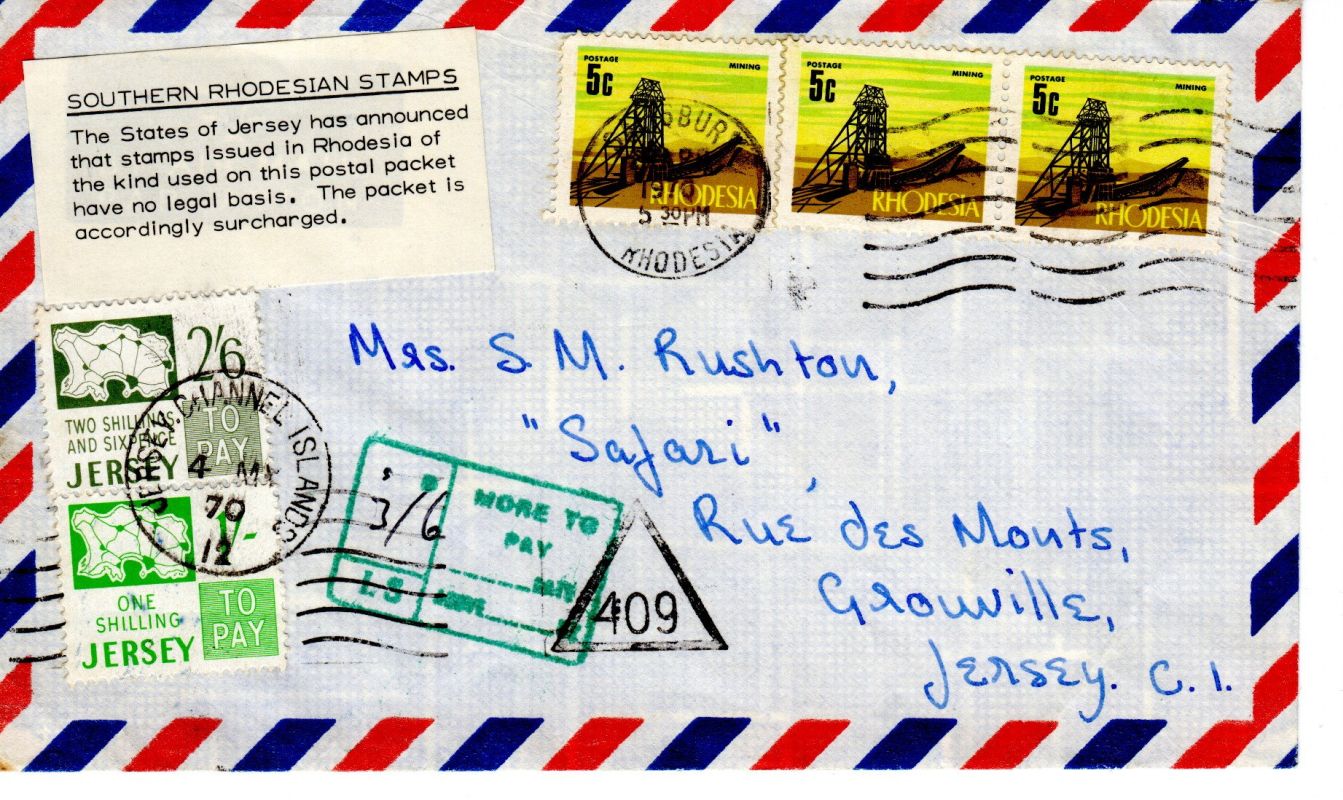 SOUTHERN RHODESIAN STAMPS
The States of Jersey has announced
that stamps issued in Rhodesia of
the kind used on this postal packet
have no legal basis. The packet is
accordingly surcharged.
POSTAGE MINING
5c
RHODESIA
POSTAGE MINING
5c
RHODESIA
POSTAGE MINING
5c
RHODESIA
5 30 PM
RHODESIA
2'6
TWO SHILLINGS
AND SIXPENCE
TO
PAY
JERSEY
JERSEY. CHANNEL ISLANDS
4 MY
70
12
1/-
ONE
SHILLING
JERSEY
TO
PAY
3/6
MORE TO
PAY
I.S
409
Mrs. S. M. Rushton,
"Safari",
Rue des Monts,
Grouville,
Jersey. C. I.